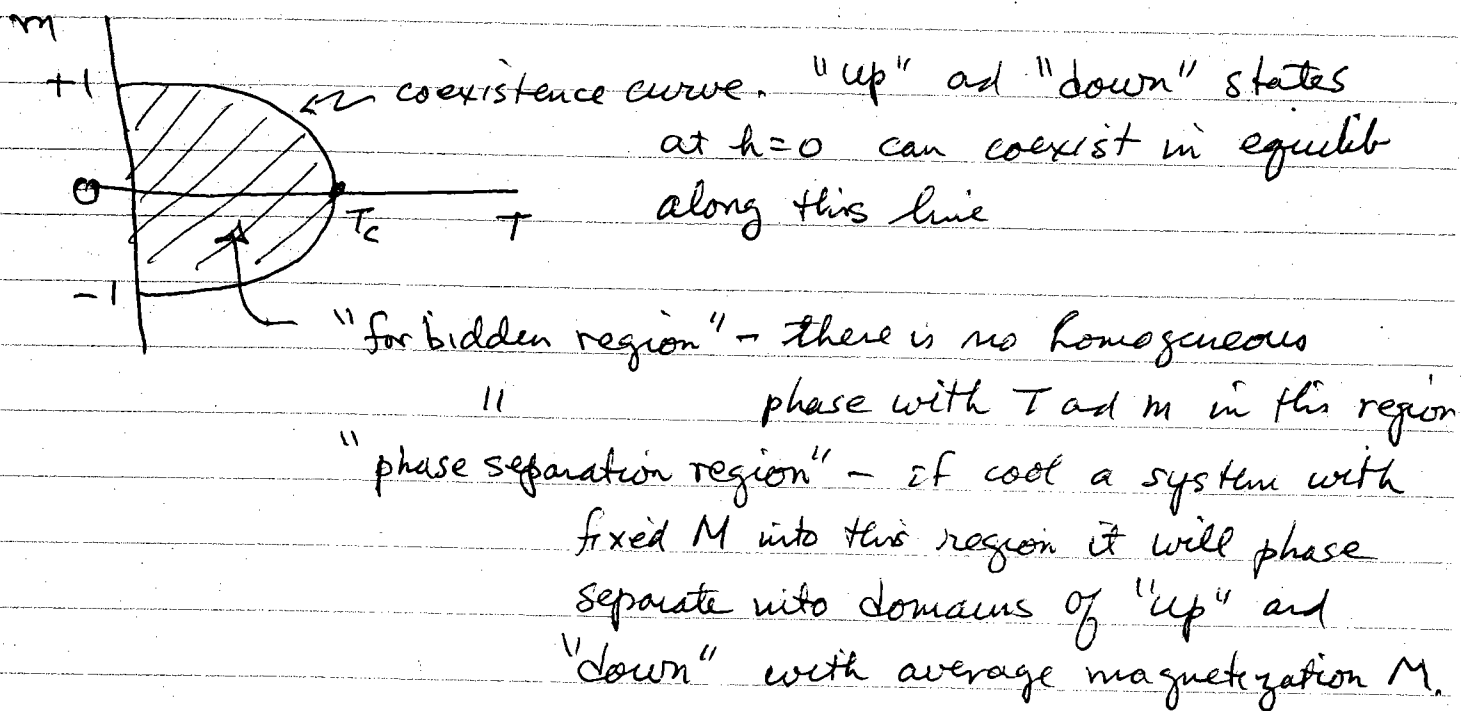 m
+1
coexistence curve. "up" ad "down" states
at h=0 can coexist in equilib
0
Tc
T
along this line
-1
"forbidden region" - there is no homogeneous
" phase with T ad m in this region
"phase separation region" - if cool a system with
fixed M into this region it will phase
separate into domains of "up" and
"down" with average magnetization M.